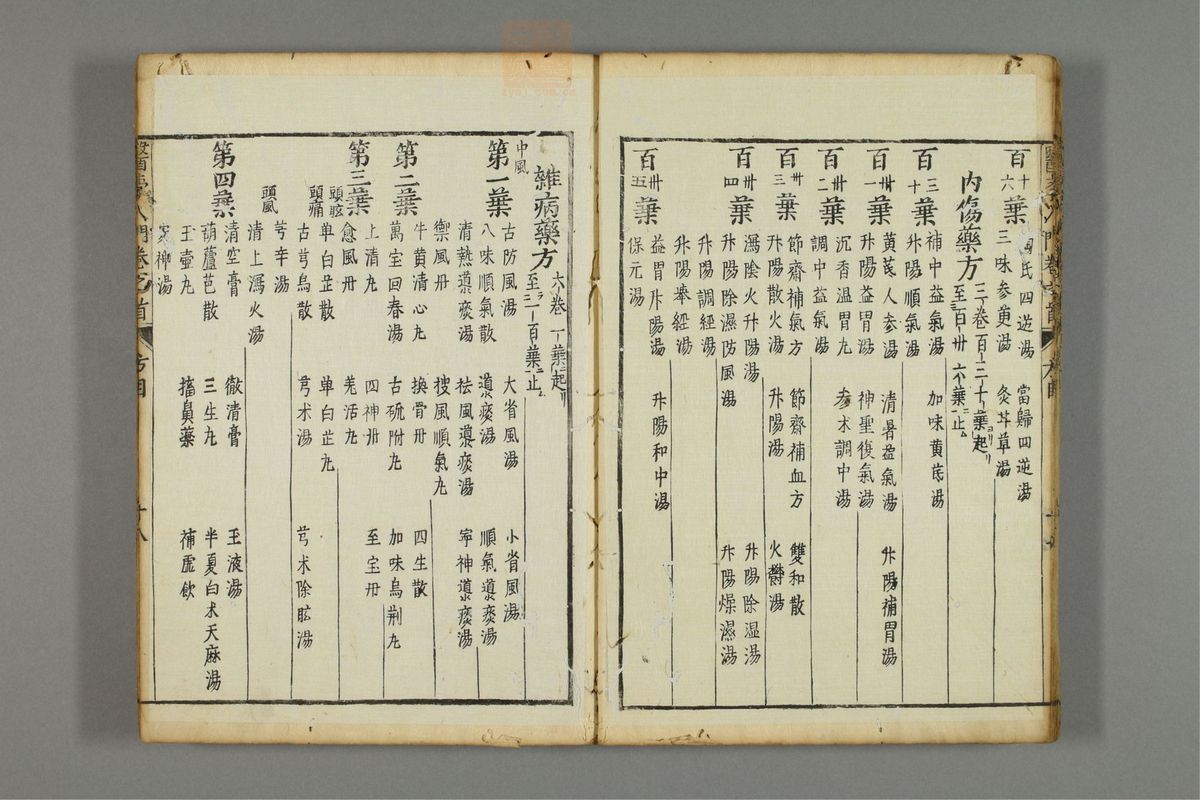 百十六葉 陶氏四逆湯 當歸四逆湯
三味參萸湯 灸甘草湯
內傷藥方 三卷百二十葉起 至百卅六葉止
百三十葉 補中益氣湯 加味黄芪湯
升陽順氣湯
百卅一葉 黄芪人參湯 清暑益氣湯 升陽補胃湯
升陽益胃湯 神聖復氣湯
百卅二葉 沉香温胃丸 參术調中湯
調中益氣湯
百卅三葉 節齋補氣方 節齋補血方 雙和散
升陽散火湯 升陽湯 火欝湯
百卅四葉 瀉陰火升陽湯 升陽除湿湯
升陽除濕防風湯 升陽燥濕湯
升陽調經湯
升陽舉經湯
百卅五葉 益胃升陽湯 升陽和中湯
保元湯
雜病藥方 六卷一葉起 至一百葉止
中風
第一葉 古防風湯 大省風湯 小省風湯
八味順氣散 導痰湯 順氣導痰湯
清熱導痰湯 祛風導痰湯 寧神導痰湯
禦風丹 搜風順氣丸
第二葉 牛黄清心丸 換骨丹 四生散
萬宝回春湯 古硫附丸 加味烏荆丸
上清丸 四神丹 至宝丹
第三葉 愈風丹 羌活丸
頭眩 單白芷散 單白芷丸
頭痛 古芎烏散 芎术湯 芎术除眩湯
芎辛湯
頭風 清上瀉火湯
第四葉 清空膏 徹清膏 玉液湯
葫蘆芭散 三生丸 半夏白术天麻湯
玉壺丸 搐鼻藥 補虛飲